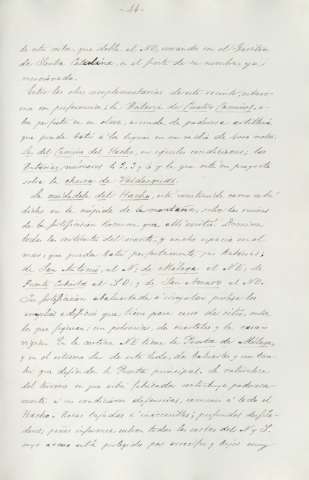 - 44 -
de este ramo, que dobla al NO, cerrando en el Bastion
de Santa Catalina, en el fuerte de su nombre, ya
mencionado.
Entre las obras complementarias de este recinto,
en preferencia; la Batería de Cuatro Caminos,
perfecta en su clase, armada de poderosa artillería
que puede batir a la legua en un radio de
la del Camino del Hacho, en iguales condiciones; las
Baterías, números 1, 2, 3, y 4 y la que está en proyecto
sobre la altura de Valdeaguas.
La ciudadela del Hacho, está construida como se ha
dicho en la cúspide de la montaña, sobre las ruinas
de la fortificación Romana que allí existía. Domina
toda la vertiente del monte, y ancho espacio en el
mar, que puede batir perfectamente sus Baterías,
de San Antonio, al N: de Málaga al NE; de
Punta Cabuta al S.O; y de San Amaro al NO.
Su fortificación abaluartada o irregular protege los
edificios que tiene para servir del sitio, entre
los que figuran, sus polvorines, de cuarteles y la casa-
vigía. En la cortina NE tiene la Puerta de Málaga,
y en el extremo de este lado, dos baluartes y un
que defiende la Puerta principal. La naturaleza
del terreno en que está fabricada contribuye poderosa-
mente a sus condiciones defensivas, comunes a todo el
Hacho. Rocas tajadas e inaccesibles; profundos desfila-
deros; peñas informes cubren todas las costas del N y S.
cuyo acceso está protegido por arrecifes y bajos muy